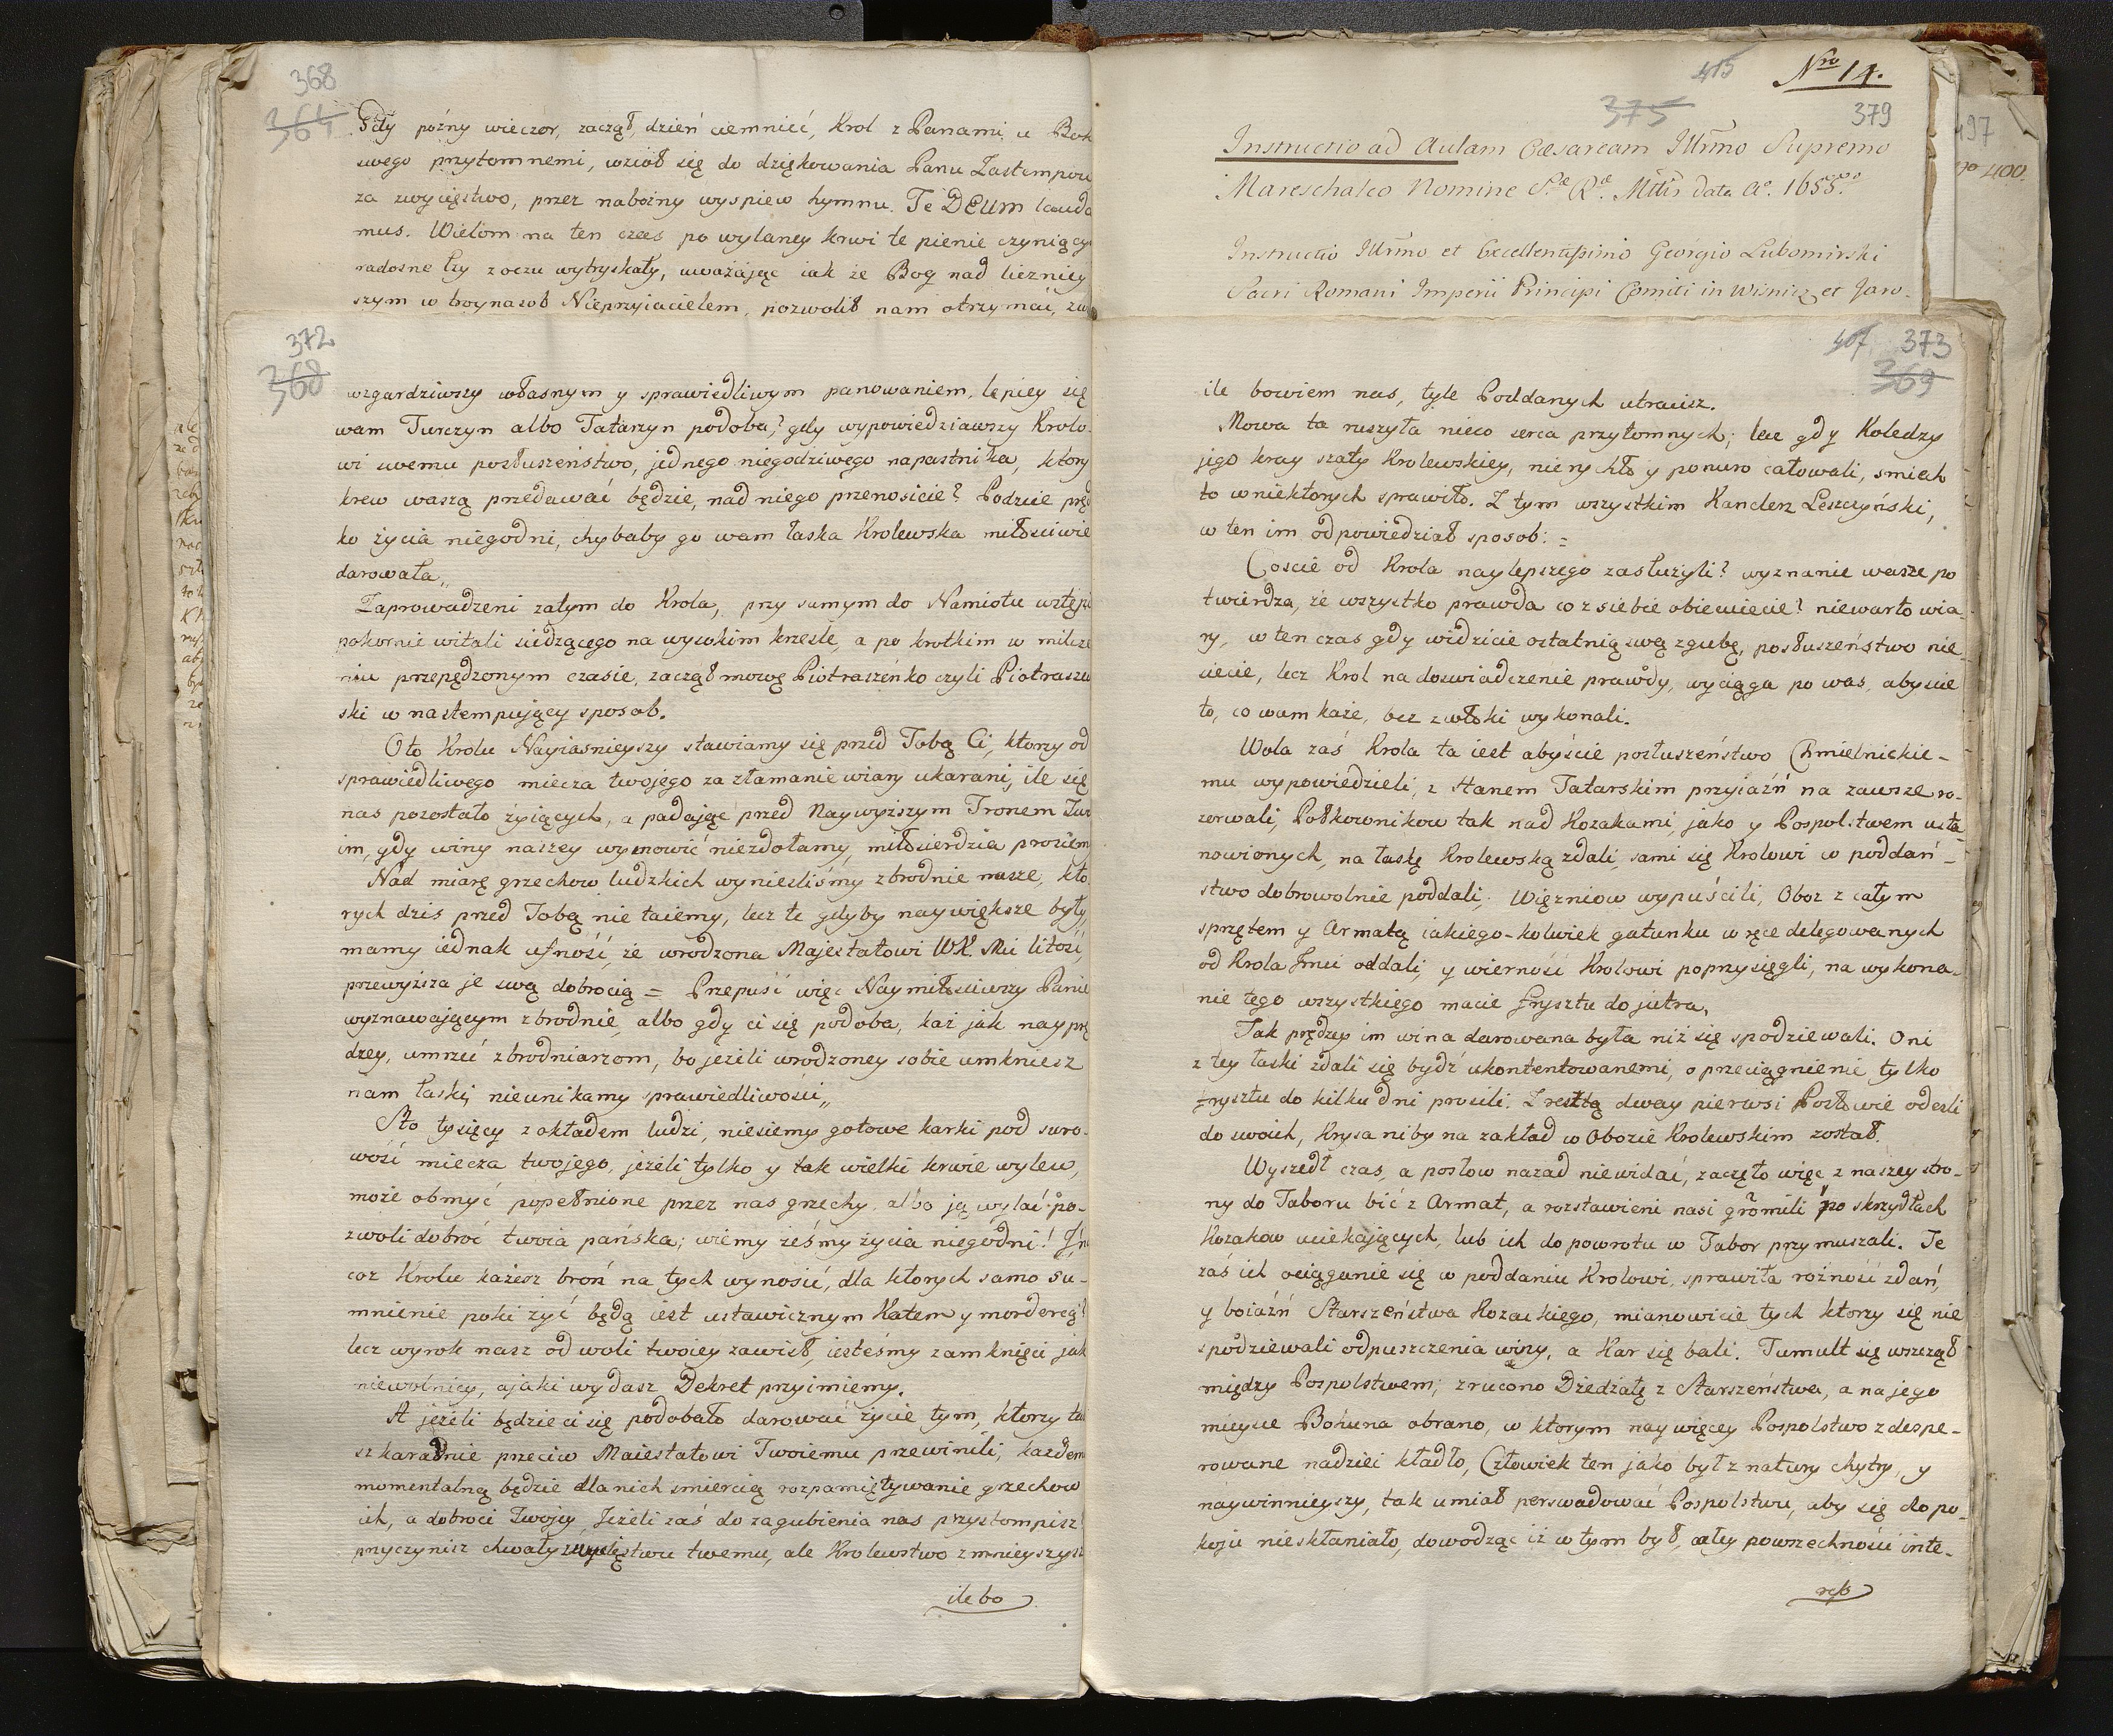 368
364
Gdy pózny wieczor, zaczął, dzień ciemnieć, Krol z Panami u Bok
swego przytomnemi, wziół się do dziękowania Panu Zastempow
za zwycięstwo, przez nabożny wyspiew hymnu. Te DEUM lauda
mus. Wielom na ten czas po wylaney krwi te pienie czyniący
radosne łzy z oczu wytryskały, uważając iak że Bog nad liczniey
szym w troynasob Nieprzyiacielem, pozwolił nam otrzymać, zw
372
368
wzgardziwszy własnym y sprawiedliwym panowaniem, lepiey się
wam Turczyn albo Tatarzyn podoba? gdy wypowiedziawszy Krolo-
wi swemu posłuszeństwo, jednego niegodziwego napastnika, ktory
krew waszą przedawać będzie, nad niego przenosicie? Podzcie pręd
ko życia niegodni, chybaby go wam łaska Krolewska miłościwie
darowała„
Zaprowadzeni zatym do Krola, przy samym do Namiotu wstępie
pokornie witali siedzącego na wysokim krzesle, a po krotkim w milcze
niu przepędzonym czasie, zaczął mowę Piotraszeńko czyli Piotraszew
ski w nastempujący sposob.
Oto Krolu Nayiasnieyszy stawiamy się przed Tobą Ci, ktorzy od
sprawiedliwego miecza twojego za złamanie wiary ukarani, ile się
nas pozostało żyiących, a padając przed Naywyższym Tronem Two
im, gdy winy naszey wymowić niezdołamy, miłosierdzia prosiem
Nad miarę grzechow ludzkich wynieśliśmy zbrodnie nasze, kto
rych dzis przed Tobą nie taiemy, lecz te gdyby naywiększe były,
mamy iednak ufność, że wrodzona Majestatowi WK. Mci litość,
przewyższa je swą dobrocią = Przepuść więc Naymiłościwszy Panie
wyznawającym zbrodnie, albo gdy ci się podoba, każ jak nayprę
dzey, umrzeć zbrodniarzom, bo jeżeli wrodzoney sobie umkniesz
nam łaski, nieunikamy sprawiedliwości„
Sto tysięcy z okładem ludzi, niesiemy gotowe karki pod suro-
wość miecza twojego, jeżeli tylko y tak wielki krwie wylew,
może obmyć popełnione przez nas grzechy, albo ją wylać po-
zwoli dobroć twoia pańska; wiemy żeśmy życia niegodni!
coż Krolu każesz broń na tych wynosić, dla ktorych samo Su-
mnienie poki żyć będą iest ustawicznym Katem y mordercą?
lecz wyrok nasz od woli twoiey zawisł, iesteśmy zamknięci jak
niewolnicy, a jaki wydasz Dekret przyimiemy.
A jeżeli będzie ci się podobało darować życie tym, ktorzy tak
szkaradnie przeciw Maiestatowi Twoiemu przewinili, każdem
momentalną będzie dla nich smiercią rozpamiętywanie grzechow
ich, a dobroci Twojey, Jeżeli zaś do zagubienia nas przystompisz
przyczynisz chwały zwycięstwu twemu, ale Krolewstwo zmnieyszysz
ile bo
415
Nro 14.
375
379
Instructio ad Aulam Cæsaream Illrmo Supremo
Mareschalco Nomine Sae Rae Mttis data Ao. 1655.
Instructio Illrmo et Excellentissimo Georgio Lubomirski
Sacri Romani Imperii Principi Comiti in Wisnicz et Jaro-
497
400.
407
373
369
ile bowiem nas, tyle Poddanych utracisz.
Mowa ta ruszyła nieco serca przytomnych; lecz gdy Koledzy
jego kray szaty Krolewskiey, nierychło y ponuro całowali, smiech
to w niektorych sprawiło. Z tym wszystkim Kanclerz Leszczyński,
w ten im odpowiedział sposob: =
Coscie od Krola naylepszego zasłużyli? wyznanie wasze po
twierdza, że wszystko prawda co z siebie obiecuiecie? niewarto wia-
ry, w ten czas gdy widzicie ostatnią swą zgubę, posłuszeństwo nie-
siecie, lecz Krol na doswiadczenie prawdy, wyciąga po was, abyscie
to, co wam każe, bez zwłoki wykonali.
Wola zaś Krola ta iest abyście posłuszeństwo Chmielnickie-
mu wypowiedzieli, z Hanem Tatarskim przyiaźń na zawsze ro-
zerwali, Połkownikow tak nad Kozakami, jako y Pospolstwem usta
nowionych, na łaskę Krolewską zdali, sami się Krolowi w poddań-
stwo dobrowolnie poddali, Więzniow wypuścili, Oboz z całym
sprzętem y Armatą iakiego-kolwiek gatunku w ręce delegowanych
od Krola Jmci oddali, y wierność Krolowi poprzysięgli, na wykona-
nie tego wszystkiego macie frysztu do jutra.
Tak prędzey im wina darowana była niż się spodziewali. Oni
z tey łaski zdali się bydź ukontentowanemi, o przeciągnienie tylko
frysztu do kilku dni prosili. Zresztą dway pierwsi Posłowie odeszli
do swoich, Krysa niby na zakład w Obozie Krolewskim został.
Wyszedł czas, a posłow nazad niewidać, zaczęto więc z naszey stro-
ny do Taboru bić z Armat, a rozstawieni nasi gromili po skrzydłach
Kozakow uciekających, lub ich do powrotu w Tabor przymuszali. Te
zaś ich ociąganie się w poddaniu Krolowi, sprawiła rożność zdań,
y boiaźń Starszeństwa Kozackiego, mianowicie tych ktorzy się nie
spodziewali odpuszczenia winy, a Kar się bali. Tumult się wszczął
między Pospolstwem; zrucono Dziedziałę z Starszeństwa, a na jego
mieysce Bohuna obrano, w ktorym naywięcey Pospolstwo zdespe-
rowane nadziei kładło, Człowiek ten jako był z natury chytry, y
naywinnieyszy, tak umiał perswadować Pospolstwu, aby się do po-
koju nieskłaniało, dowodząc iż w tym był, całey powszechności inte-